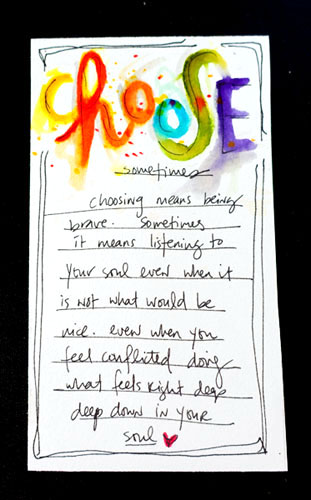 CHOOSE
sometimes
choosing means being
brave. sometimes
it means listening to
your soul even when it
is not what would be
nice. even when you
feel conflicted doing
what feels right deep
deep down in your
soul